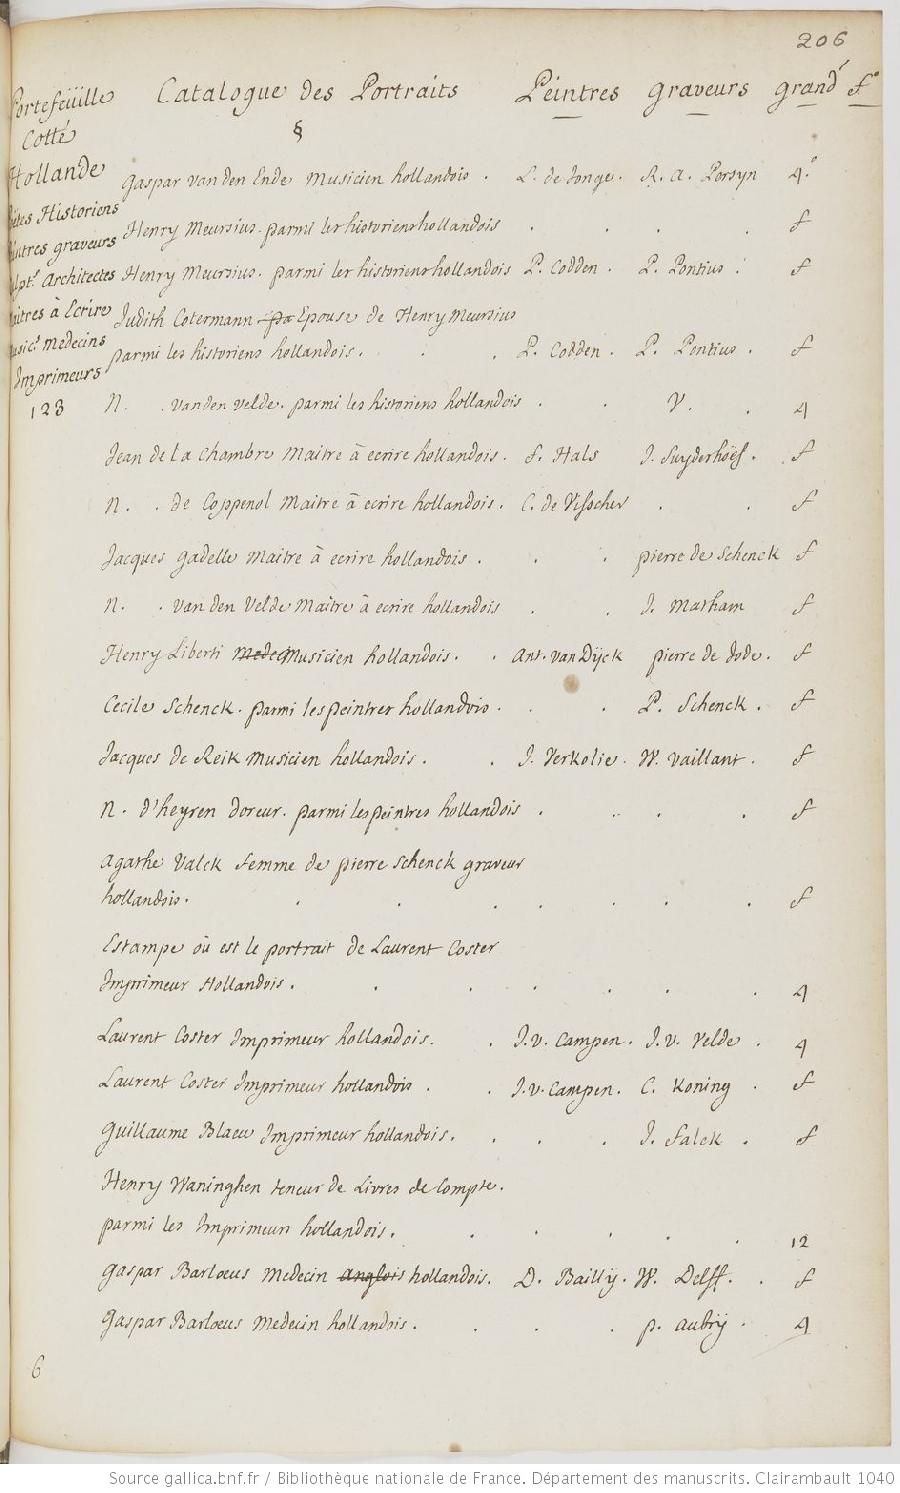 206
Portefeüille Catalogue des Portraits Peintres graveurs grand.r f.o
Cotté §
Hollande
Gaspar van den Ende musicien hollandois . L. de Jonge . R. a. Persyn 4.o
Poëtes Historiens
Henry Meursius . parmi les historiens hollandois . . . . f
Peintres graveurs
Sculpt.rs Architectes Henry Meursius . parmi les historiens hollandois P. Codden . P. Pontius . f
Maitres à Ecrire Judith Cotermann pa Epouse de Henry Meursius
Music.s medecins parmi les historiens hollandois . . . P. Codden . P. Pontius . f
Imprimeurs
123 N. . van den velde . parmi les historiens hollandois . . V. . 4
Jean de la chambre maitre à ecrire hollandois . f. Hals J. Suyderhoëf . f
N. . de Coppenol maitre à ecrire hollandois . C. de Visscher . . f
Jacques gadelle maitre à ecrire hollandois . . . pierre de schenck f
N. . van den velde maitre à ecrire hollandois . . J. matham f
Henry Liberti medeç musicien hollandois . . Ant. van Dijck pierre de Jode . f
Cecile Schenck . parmi les peintres hollandois . . . P. Schenck . f
Jacques de Reik musicien hollandois . . J. Verkolie . W. vaillant . f
N. d'heyren doreur . parmi les peintres hollandois . . . . f
agathe Valck femme de pierre schenck graveur
hollandois . . . . . . . . f
Estampe où est le portrait de Laurent Coster
Imprimeur Hollandois . . . . . . . 4
Laurent Coster Imprimeur hollandois . . J. v. Campen . J. v. Velde . 4
Laurent Coster Imprimeur hollandois . . J. v. Campen . C. Koning . f
Guillaume Blaeu Imprimeur hollandois . . . . J. Falck . f
Henry Waninghen teneur de Livres de Compte .
parmi les Imprimeurs hollandois . . . . . . 12
gaspar Barloeus medecin anglois hollandois . D. Bailly . W. Delff . . f
gaspar Barloeus medecin hollandois . . . . p. aubrÿ . 4
6
Source gallica.bnf.fr / Bibliothèque nationale de France. Département des manuscrits. Clairambault 1040